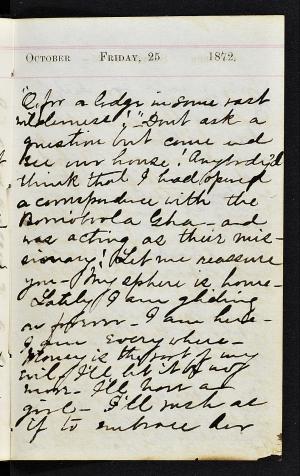 October Friday, 25 1872.
"O, for a lodge in some vast
wilderness!" Don't ask a
question but come and
see our house! Anybody'd
think that I had opened
a correspondence with the
Gha - and
was acting as their mis-
sionary! Let me reassure
you - My sphere is home -
Lately I am gliding
 - I am here -
I am everywhere -
Money is the root of my
evil, I'll let it
more - I'll
- I'll rush as
if to embrace her